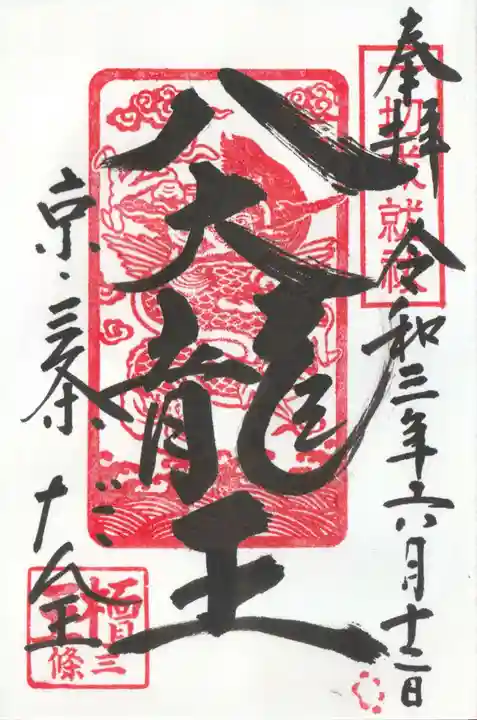 奉拝 令和三年六月十二日
八大龍王
京・三条 だん王
三條
檀王